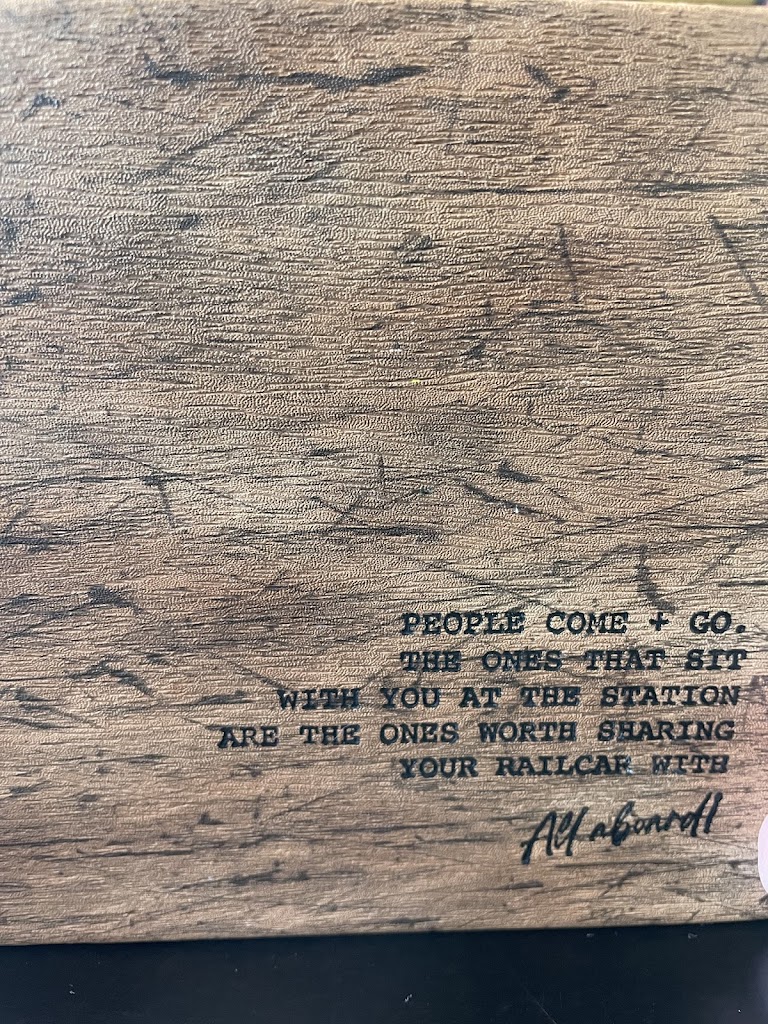 PEOPLE COME + GO.
THE ONES THAT SIT
WITH YOU AT THE STATION
ARE THE ONES WORTH SHARING
YOUR RAILCAR WITH
All aboard!